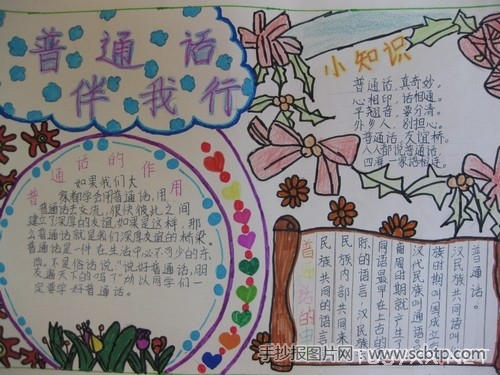 普通话
伴我行
小知识
普通话,真奇妙。
心相印,话相通。
平翘音,要分清。
外乡人,别担心。
普通话,友谊桥。
人人都说普通话
四海一家语相连。
普通话的作用
如果我们大
家都学会用普通话,用
普通话去交流,很快彼此之间
建立了深厚的友谊,如果是这样,那
么普通话就是我们深厚友谊的桥梁。
普通话是一件在生活中必不可少的东
西。不是俗话说:"说好普通话,朋
友遍天下的吗?"所以同学们一
定要学好普通话。
普通话的
民族共同的语言
民族内部共同来
际的语言。汉民族
同语最早在上古的
周时期就产生了
汉代民族叫通语
族时期叫国
汉民族共同话叫
手抄报图片网:www.scbtp.com